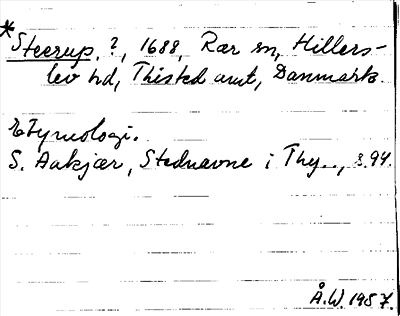 *Steerup, ?, 1688, Rær sn, Hillers-
lev hd, Thisted amt, Danmark.
Etymologi.
S. Aakjær, Stednavne i Thy.., s.94.
Å.W. 1987.